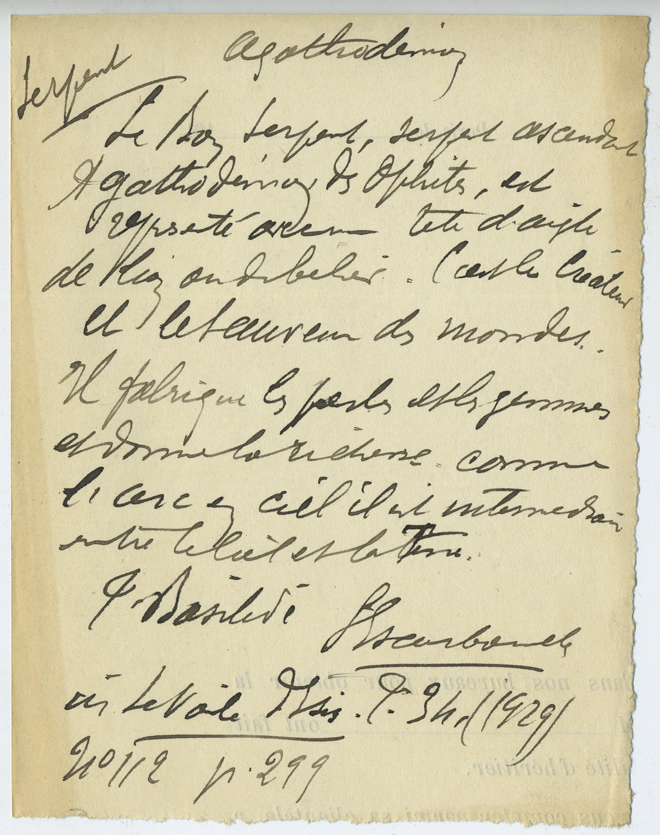 Serpent
Agathodémon
Le Bon Serpent, serpent ascendant
Agathodémon des Ophites, est
représenté avec une tête d'aigle
de lion ou de bélier. C'est le Créateur
et le sauveur des mondes.
Il fabrique les perles et les gemmes
et donne la richesse. comme
l'arc en ciel il est intermédiaire
entre le ciel et la Terre.
P. Basilide
L'Escarboucle
in Le Voile d'Isis. T. 34. (1929)
N° 112 p. 299
dans nos bureaux pour obtenir la
ont fait
qualité d'héritier.